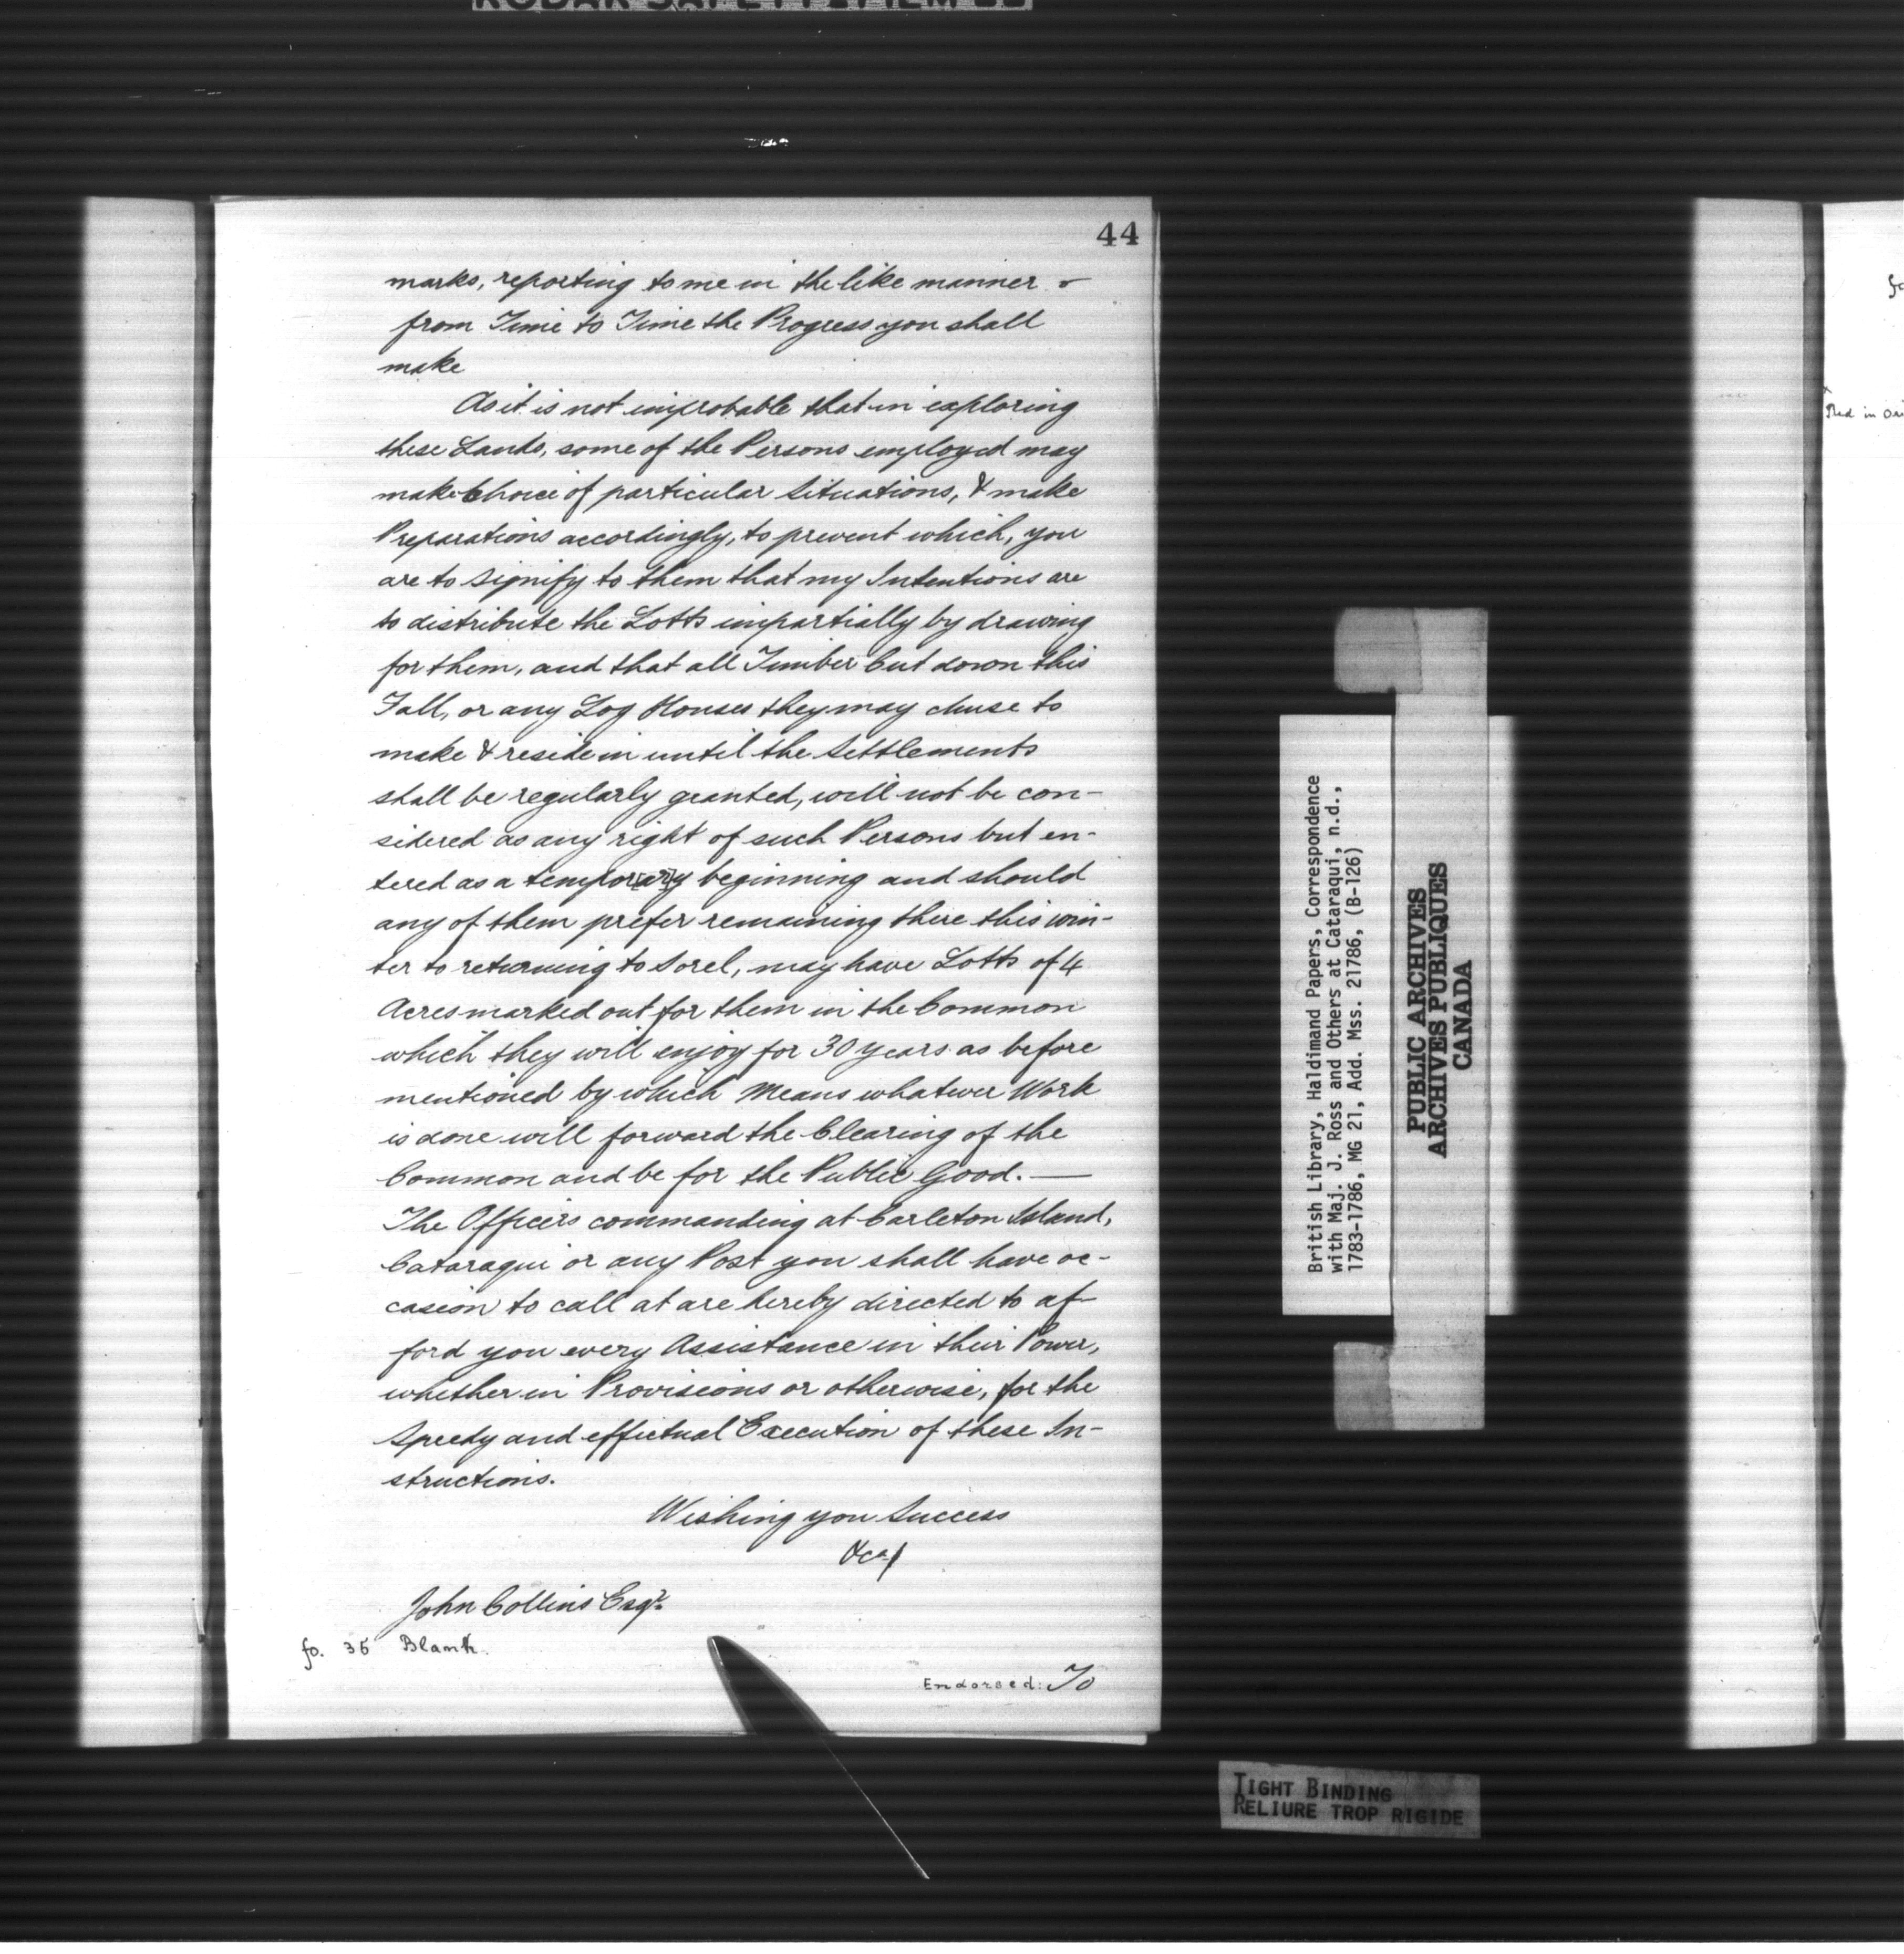 44
marks, reporting to me in the like manner &
from Time to Time the Progress you shall
make
As it is not improbable that in exploring
these Lands, some of the Persons employed may
make Choice of particular Situations, & make
Preparations accordingly, to prevent which, you
are to signify to them that my Intentions are
to distribute the Lotts impartially by drawing
for them, and that all Timber Cut down this
Fall, or any Log Houses they may chuse to
make & reside in until the Settlements
shall be regularly granted, will not be con-
sidered as any right of such Persons but en-
tered as a tempor[ar]y beginning and should
any of them prefer remaining there this win-
ter to returning to Sorel, may have Lotts of 4
Acres marked out for them in the Common
which they will enjoy for 30 years as before
mentioned by which Means whatever Work
is done will forward the Clearing of the
Common and be for the Public Good. —
The Officers commanding at Carleton Island,
Cataraqui or any Post you shall have oc-
casion to call at are hereby directed to af-
ford you every Assistance in their Power,
whether in Provisions or otherwise, for the
Speedy and effectual Execution of these In-
structions.
Wishing you Success
&ca/
John Collins Esqr.
fo. 35 Blank.
Endorsed: To
British Library, Haldimand Papers, Correspondence
with Maj. J. Ross and Others at Cataraqui, n.d.,
1783-1786, MG 21, Add. Mss. 21786, (B-126)
PUBLIC ARCHIVES
ARCHIVES PUBLIQUES
CANADA
TIGHT BINDING
RELIURE TROP RIGIDE